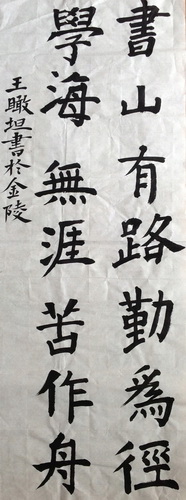 書山有路勤為徑
學海無涯苦作舟
王瞰坦書於金陵